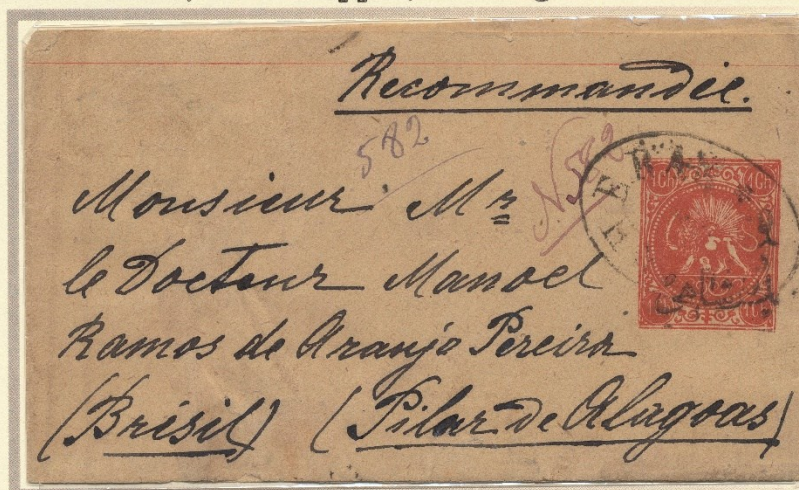 Recommandée.
582
N 582
Monsieur Mr
le Docteur Manoel
Ramos de Araujo Pereira
(Brésil) (Pilar de Alagoas)
1CH 1CH